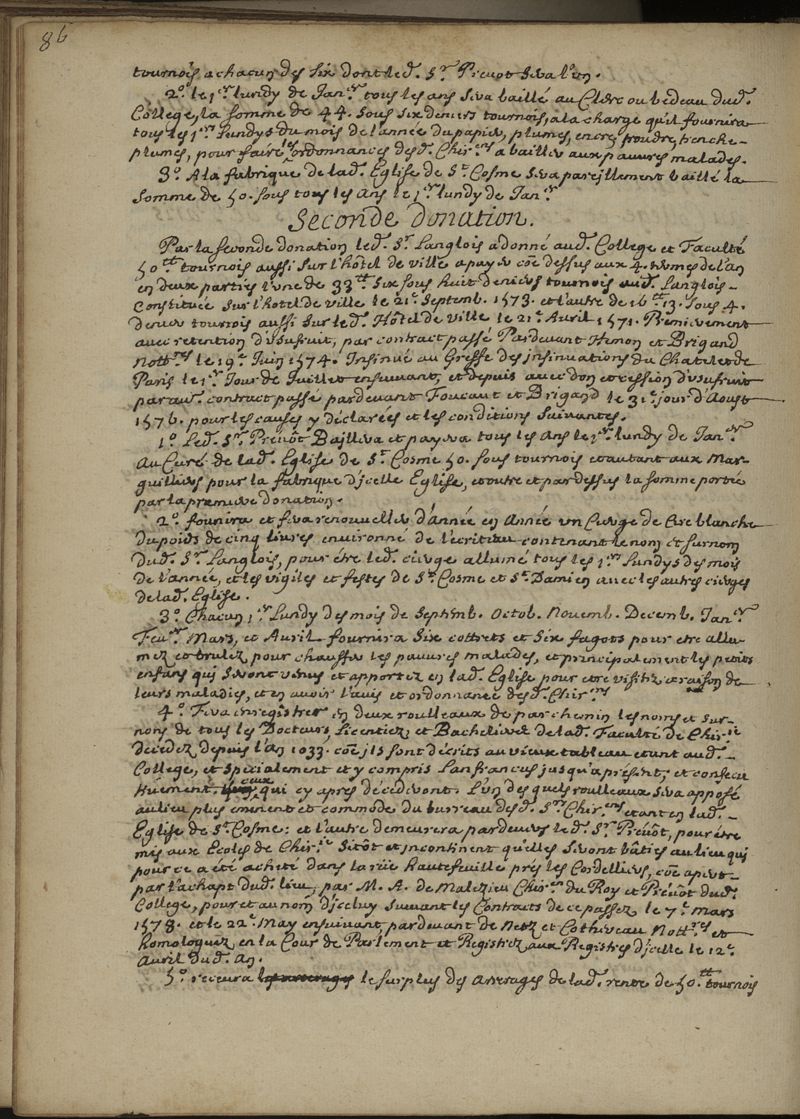 86
tournois a chacun des six dont led. Sr. Prevot sera l'un.
2.º le 1er lundy de Janer tous les ans sera baillé au Clerc ou bedeau dud.
College, la somme de 44. sous six deniers tournois, a la charge qu'il fournira
tous les 1ers Lundys du mois de l'année du papier, plumes, encre, poudre, trenche-
plumes, pour faire les ordonnances desd. Chirens a bailler aux pauvres malades.
3.º A la fabrique de lad. Eglise de St. Cosme sera pareillement baillé la
somme de 50. sous tous les ans le 1er lundy de Janer
Seconde donation.
Par la seconde donation led. Sr. Langlois a donné aud. College et Faculté
50tt tournois aussi sur l'hôtel de ville a payer cõe dessus aux 4. termes de l'an
en deux parties l'une de 33tt six sous huit deniers tournois aud. Langlois
Constituée sur l'hotel de ville le 21e. Septemb. 1573. et l'autre de 16tt 13. sous 4.
deniers tournois aussi sur led. Hôtel de ville le 21e. Auril 1571. Premierement
avec retention d'usufruit, par contract passé Pardevant Herron et Brigand
Nottres le 19e. Juin 1574. Insinué au Greffe des insinuations du Chatelet de
Paris le 1er Jour de Juillet ensuivant, et depuis avec don et cession d'usufruit
par aut. contract passé pardevant Foucaut et Brigand le 31e. jour d'Aoust
1576. pour les causes y declarées et les conditions suivantes.
1.º Led. Sr. Prevôt Baillera et payera tous les ans le 1er lundy de Janer
Au Curé de lad. Eglise de St. Cosme 50. sous tournois et autant aux Mar-
guilliers pour la fabrique d'jcelle Eglise, et outre et par dessus la somme portée
par la premiere donation.
2.º fournira et fera renouveller d'année en année un Cierge de Cire blanche
du poids de cinq livres environné de l'ecriteau contenant le nom et surnom
dud. Sr. Langlois, pour être led. cierge allumé tous les 1ers Lundys des mois
de l'année, et les vigiles et festes de St. Cosme et St. Damien avec les autres cierges
de lad. Eglise.
3.º Chacun 1er Lundy des mois de Septemb. Octob. Novemb. Decemb. Janer
Feuer Mars, et Auril fournira six cottrets et six fagots pour etre allu-
mez et brulez pour chauffer les pauvres malades, et principalement les petits
enfans qui seront venus et apportez en lad. Eglise pour etre visitez a raison de
leurs maladies, et en avoir l'avis et ordonnance desd. Chirens
4.º Fera enregistrer en deux roulleaux de parchemin les noms et sur-
noms de tous les Docteurs, Licentiez et Bacheliers de lad. Faculté de Chirie
decedez depuis l'an 1033. cõe jls sont décrits au vieux tableau etant aud.
College, et specialement et y compris Lanfrancus jusqu'a present, et consecu
tivement ceux qui cy apres decederont. L'un des quels roulleaux sera apposé
au lieu plus eminent et commode du bureau desd. Srs. Chirens etant en lad.
Eglise de St. Cosme: et l'autre demeurera pardevers led. Sr. Prevôt, pour être
mis aux Ecoles de Chirie Sitôt et jncontinent qu'elles seront bâties au lieu qui
pour ce a été acheté dans la rüe Hautefeuille près les Cordeliers, cõe apert
par l'achapt dud. lieu, par M. A. de Malezieu Chiren du Roy et Prevôt dud.
College, pour et au nom d'jceluy suivant les Contrats de ce passez le 7e. Mars
1578. et le 22e. May ensuivant pardevant de Netz et Cothereau Nottres et
Homologuez en la Cour de Parlement et Registrez aux Registres d'jcelle le 12e.
Auril dud. an.
5.º recevra le surplus des arrerages de lad. rente de 50tt tournois